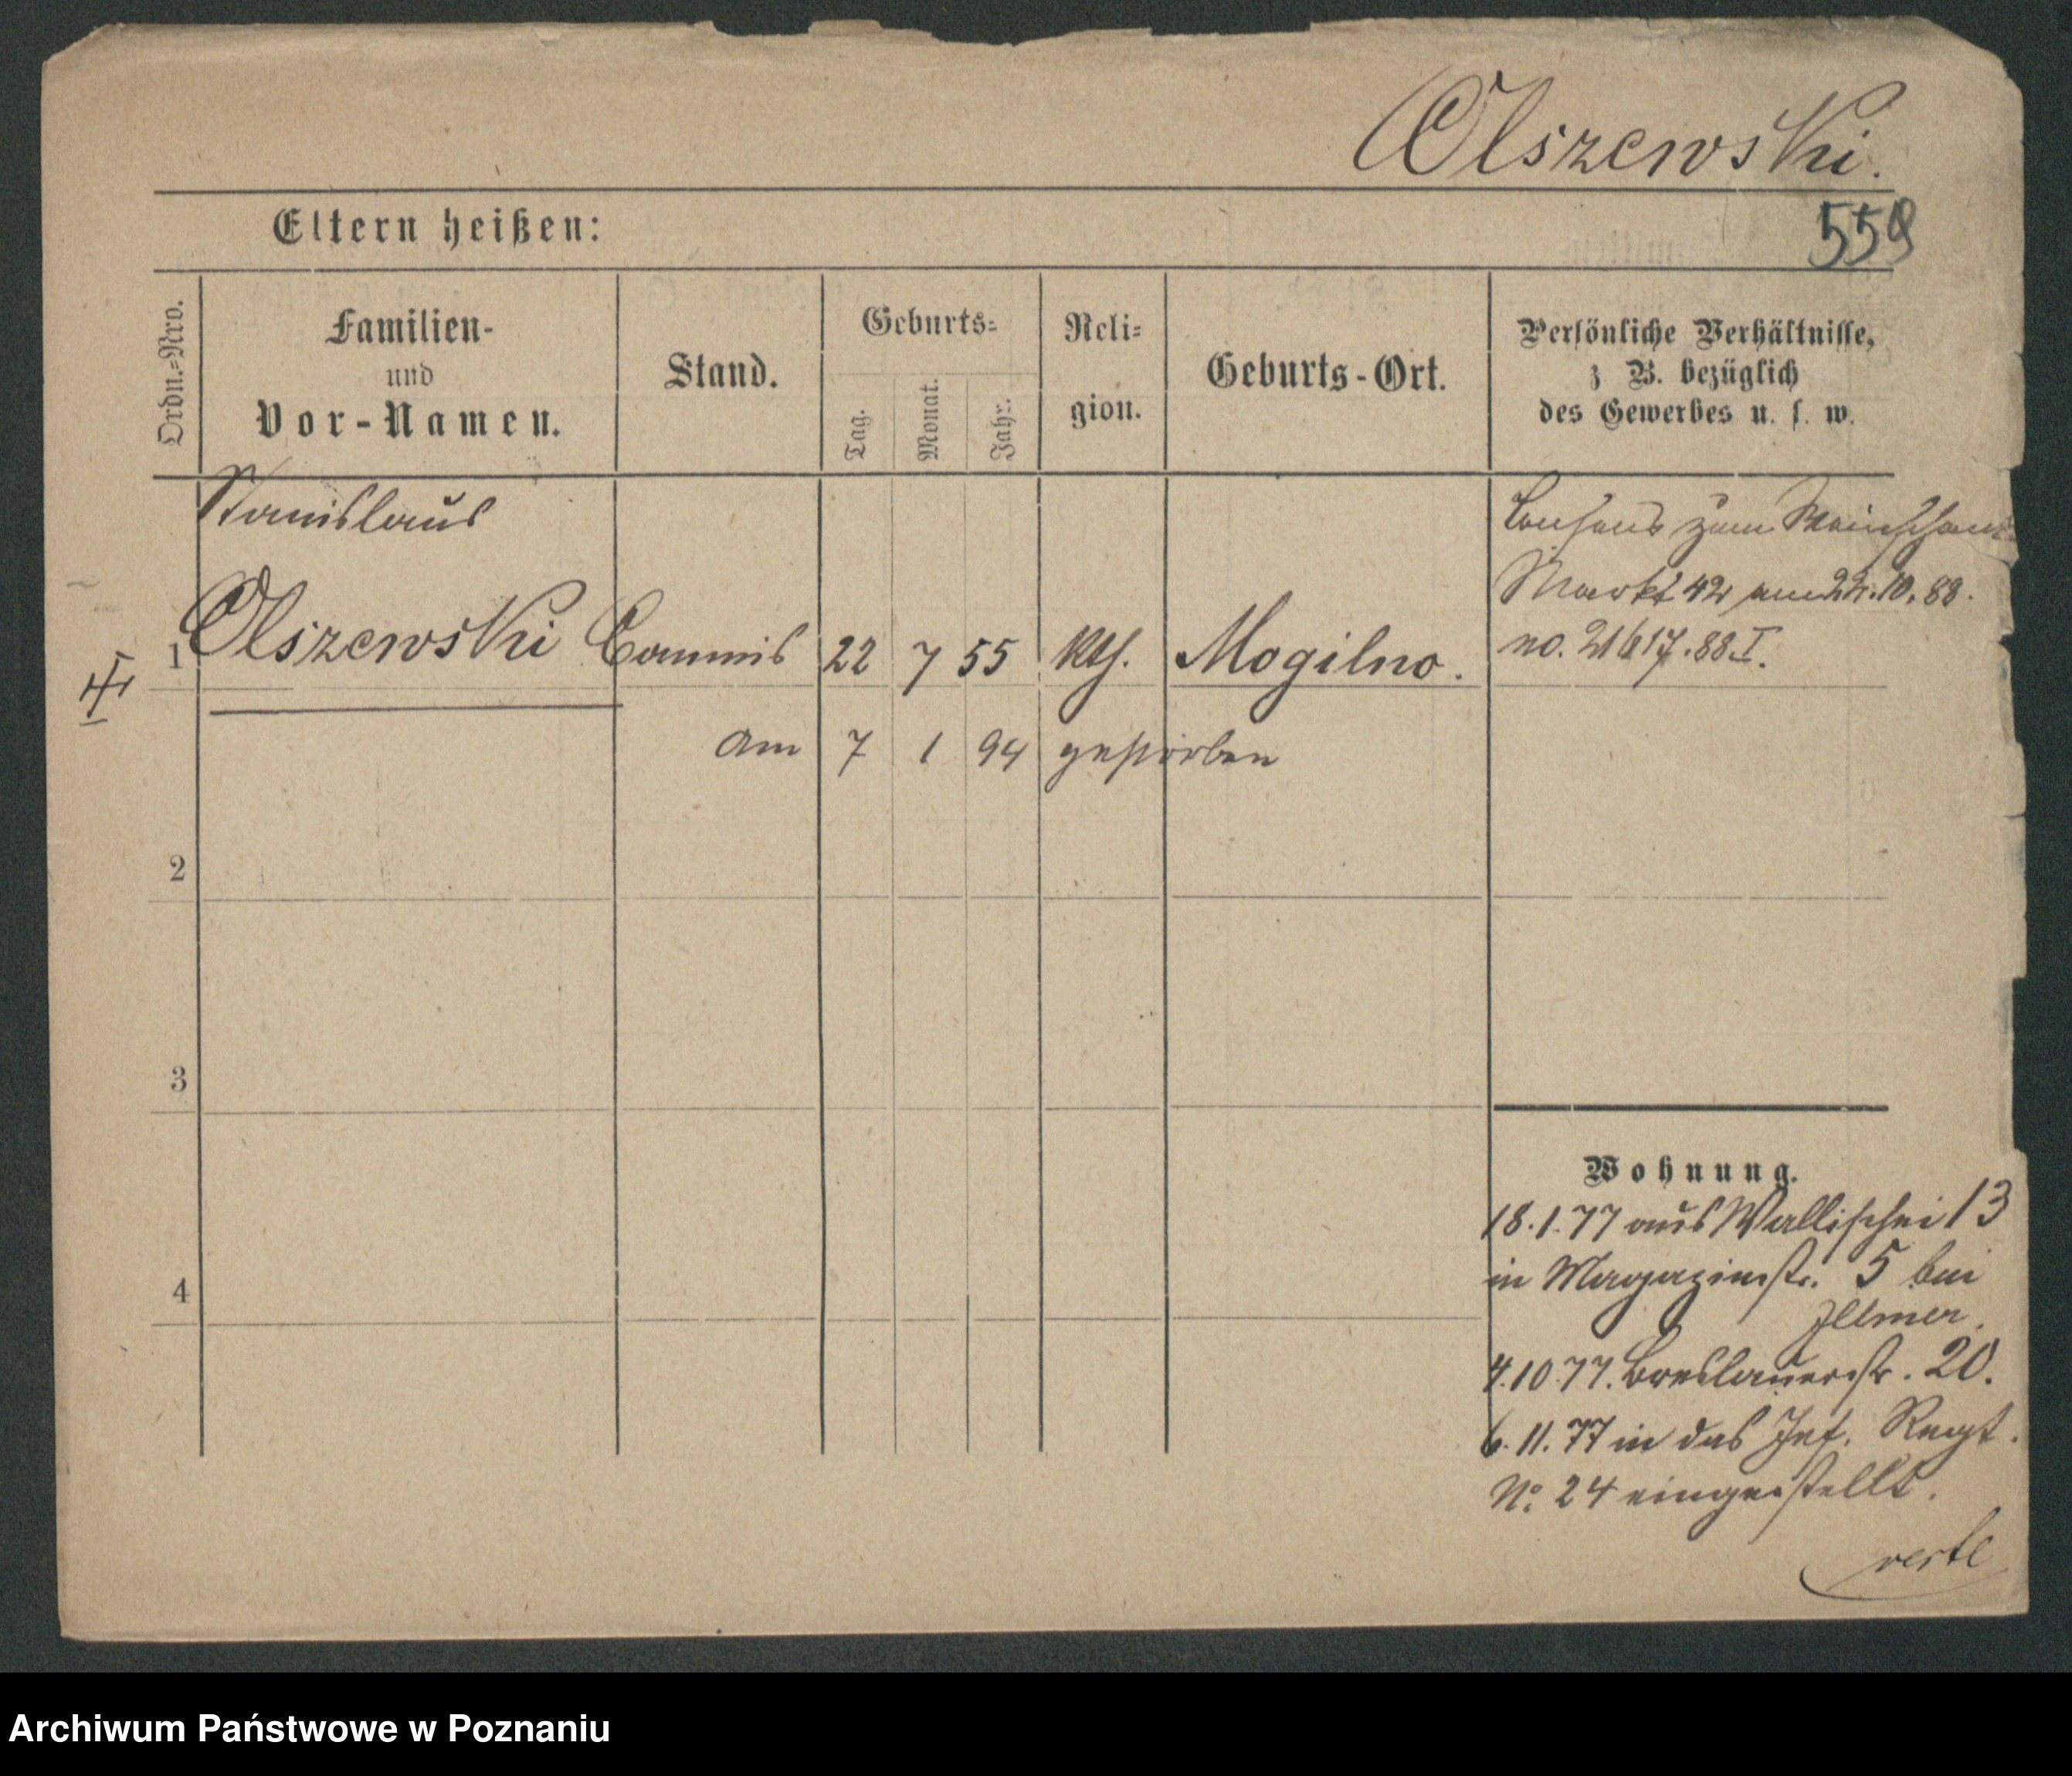 Olszewski.
559
Eltern heißen:
Ordn.-Nro.
Familien-
und
Vor-Namen.
Stand.
Geburts-
Tag.
Monat.
Jahr.
Reli-
gion.
Geburts-Ort.
Persönliche Verhältnisse,
z B. bezüglich
des Gewerbes u. s. w.
Stanislaus
1 Olszewski Commis 22 7 55 kth. Mogilno.
am 7 1 94 gestorben
Consens zum Weinschank
Markt 42 am 22.10.88.
no. 21617.88 I.
2
3
4
Wohnung.
18.1.77 aus Wallischei 13
in Magazinstr. 5 bei
Illmer.
4.10.77. Breslauerstr. 20.
6.11.77 in das Inf. Regt.
No. 24 eingestellt.
verte
Archiwum Państwowe w Poznaniu